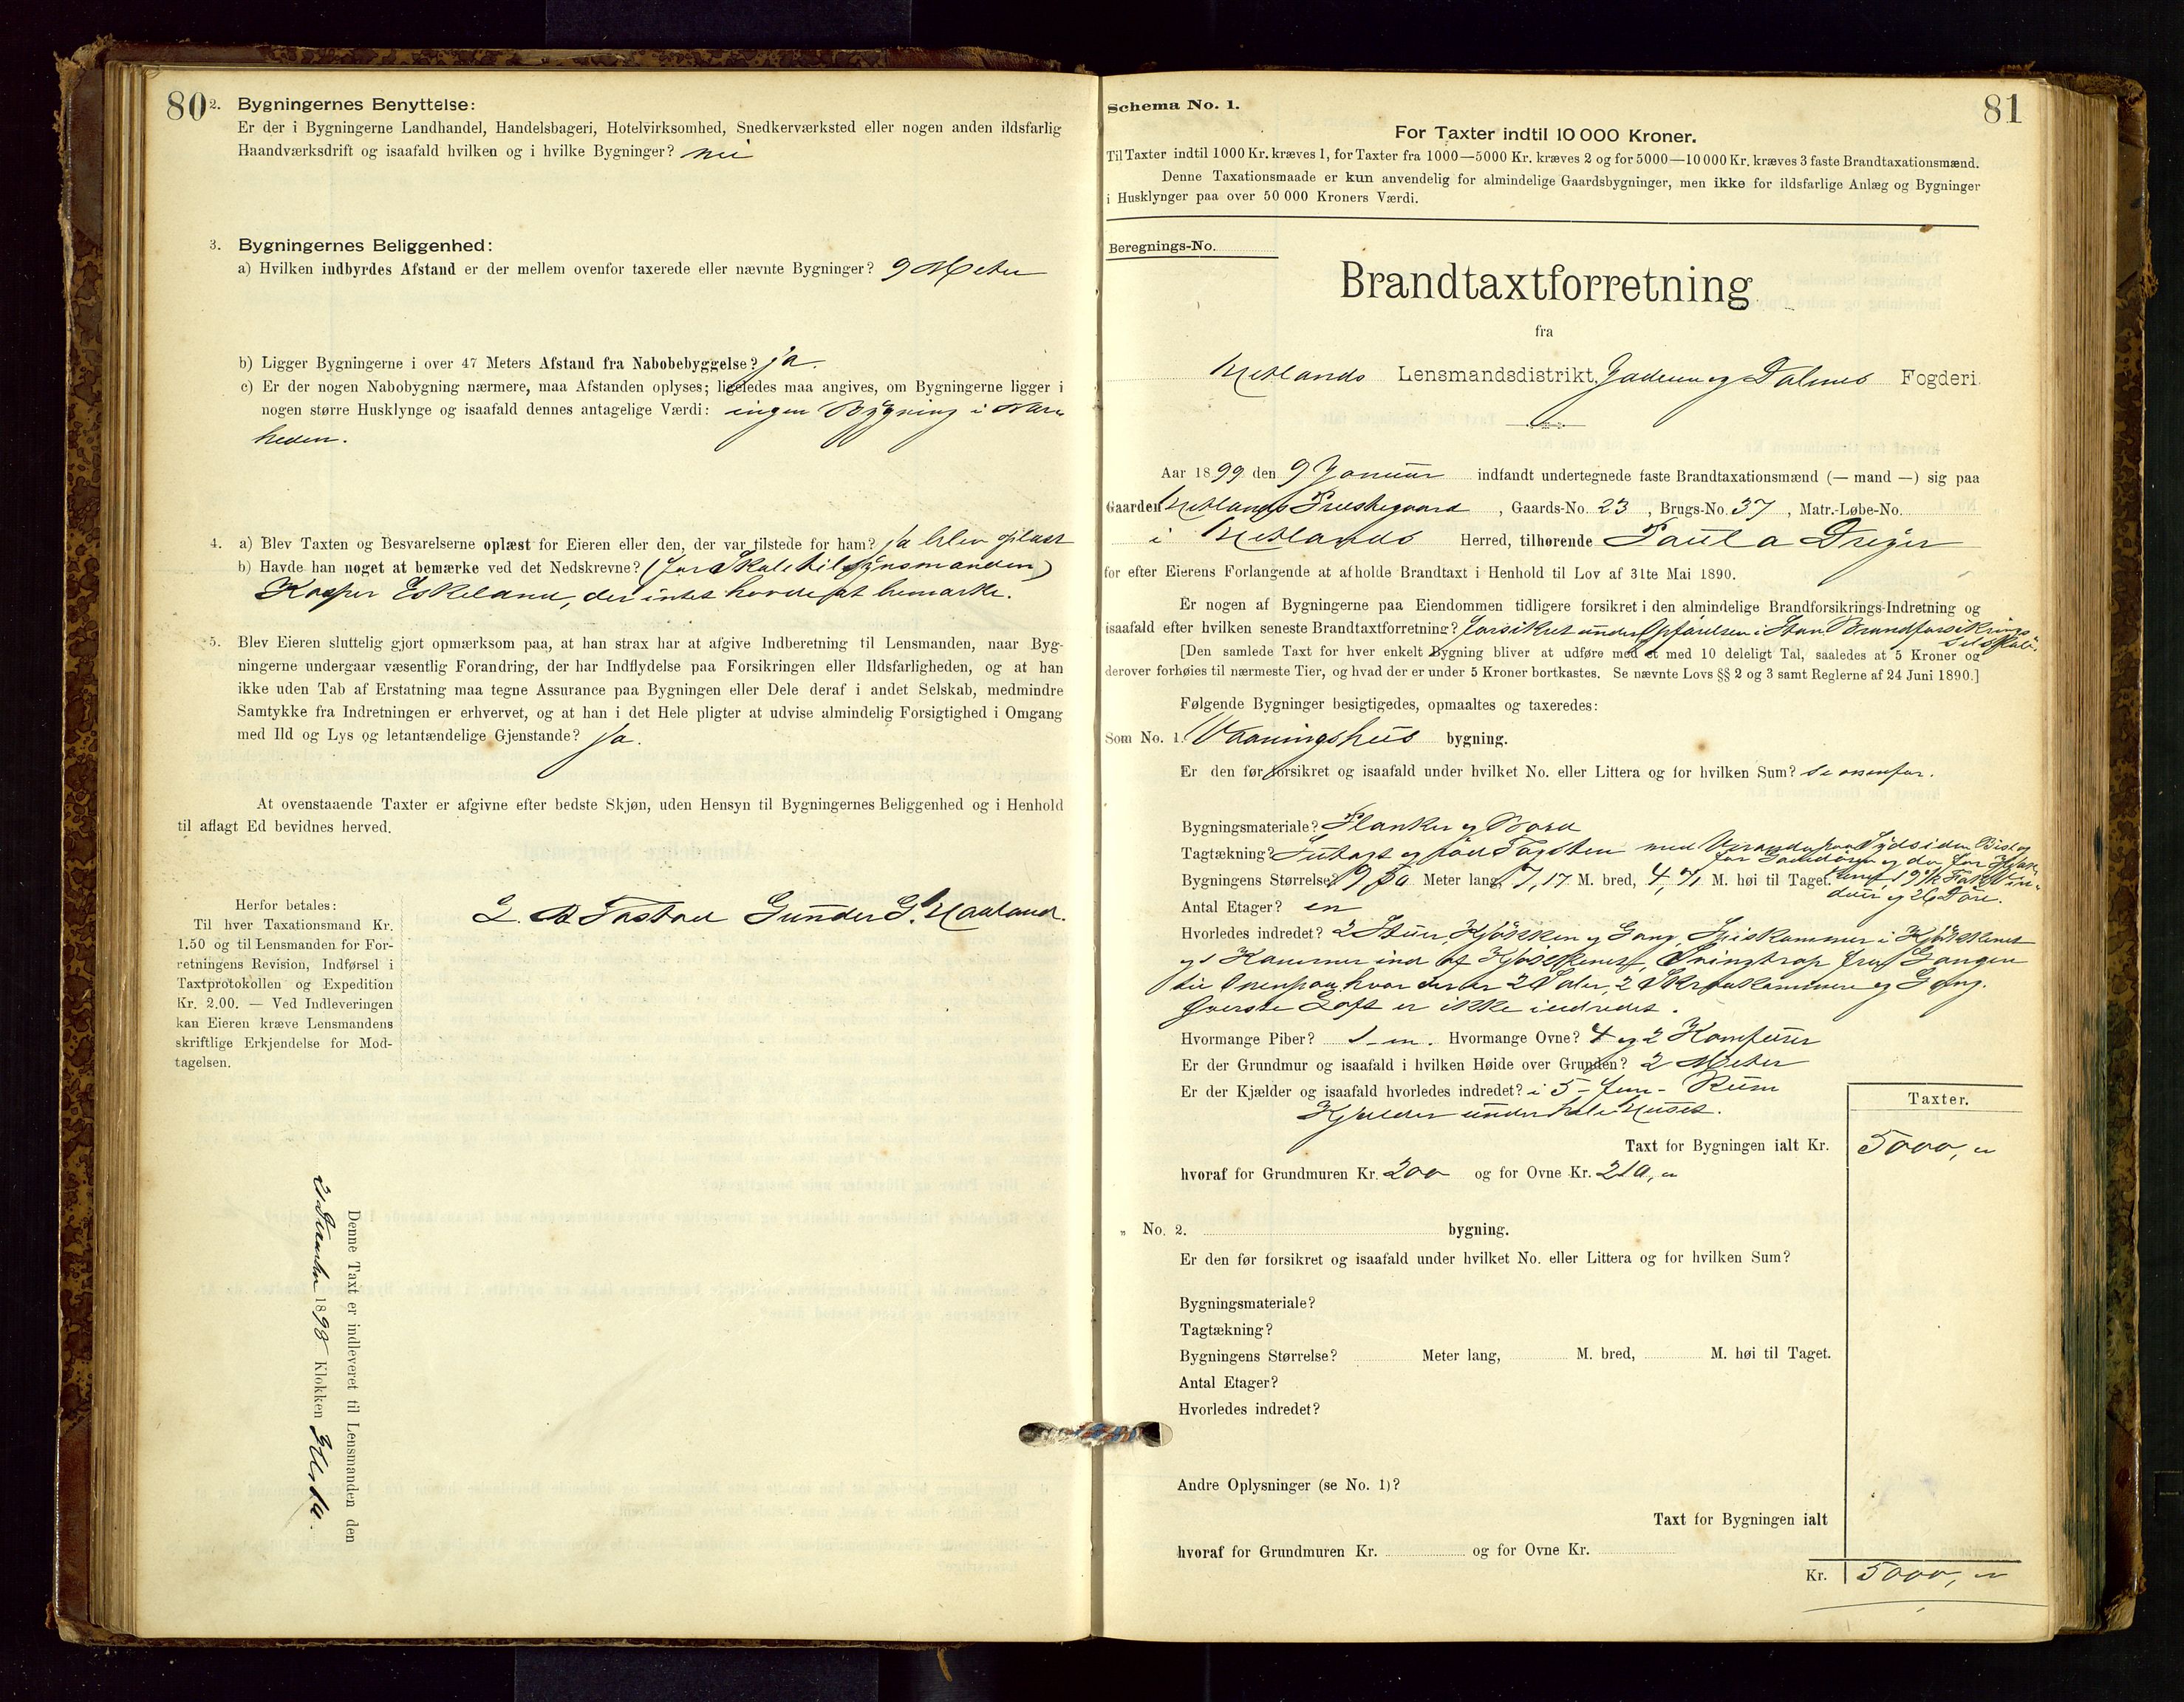 80
2. Bygningernes Benyttelse:
Er der i Bygningerne Landhandel, Handelsbageri, Hotelvirksomhed, Snedkerværksted eller nogen anden ildsfarlig
Haandværksdrift og isaafald hvilken og i hvilke Bygninger? nei
3. Bygningernes Beliggenhed:
a) Hvilken indbyrdes Afstand er der mellem ovenfor taxerede eller nævnte Bygninger? 9 Meter
b) Ligger Bygningerne i over 47 Meters Afstand fra Nabobebyggelse? ja.
c) Er der nogen Nabobygning nærmere, maa Afstanden oplyses; ligeledes maa angives, om Bygningerne ligger i
nogen større Husklynge og isaafald dennes antagelige Værdi: ingen Bygning i Nær
heden.
4. a) Blev Taxten og Besvarelserne oplæst for Eieren eller den, der var tilstede for ham? ja blev oplæst
b) Havde han noget at bemærke ved det Nedskrevne? (for Skoletilsynsmanden)
Kasper Eskeland, der intet havde at bemærke.
5. Blev Eieren sluttelig gjort opmærksom paa, at han strax har at afgive Indberetning til Lensmanden, naar Byg-
ningerne undergaar væsentlig Forandring, der har Indflydelse paa Forsikringen eller Ildsfarligheden, og at han
ikke uden Tab af Erstatning maa tegne Assurance paa Bygningen eller Dele deraf i andet Selskab, medmindre
Samtykke fra Indretningen er erhvervet, og at han i det Hele pligter at udvise almindelig Forsigtighed i Omgang
med Ild og Lys og letantændelige Gjenstande? ja.
At ovenstaaende Taxter er afgivne efter bedste Skjøn, uden Hensyn til Bygningernes Beliggenhed og i Henhold
til aflagt Ed bevidnes herved.
Tastad Gunder G. Haaland.
Herfor betales:
Til hver Taxationsmand Kr.
1.50 og til Lensmanden for For-
retningens Revision, Indførsel i
Taxtprotokollen og Expedition
Kr. 2.00. — Ved Indleveringen
kan Eieren kræve Lensmandens
skriftlige Erkjendelse for Mod-
tagelsen.
Denne Taxt er indleveret til Lensmanden den
1898 Klokken
81
Schema No. 1.
For Taxter indtil 10 000 Kroner.
Til Taxter indtil 1000 Kr. kræves 1, for Taxter fra 1000—5000 Kr. kræves 2 og for 5000—10 000 Kr. kræves 3 faste Brandtaxationsmænd.
Denne Taxationsmaade er kun anvendelig for almindelige Gaardsbygninger, men ikke for ildsfarlige Anlæg og Bygninger
i Husklynger paa over 50 000 Kroners Værdi.
Beregnings-No.
Brandtaxtforretning
fra
Hetlands Lensmandsdistrikt, Jæderen og Dalenes Fogderi.
Aar 1899 den 9 Januar indfandt undertegnede faste Brandtaxationsmænd (— mand —) sig paa
Gaarden Hetlands Præstegaard, Gaards-No. 23, Brugs-No. 37, Matr.-Løbe-No.
i Hetlands Herred, tilhørende Paul a Dreyer
for efter Eierens Forlangende at afholde Brandtaxt i Henhold til Lov af 31te Mai 1890.
Er nogen af Bygningerne paa Eiendommen tidligere forsikret i den almindelige Brandforsikrings-Indretning og
isaafald efter hvilken seneste Brandtaxtforretning? forsikret under Opførelsen i Brandforsikrings
Selskab.
[Den samlede Taxt for hver enkelt Bygning bliver at udføre med et med 10 deleligt Tal, saaledes at 5 Kroner og
derover forhøies til nærmeste Tier, og hvad der er under 5 Kroner bortkastes. Se nævnte Lovs §§ 2 og 3 samt Reglerne af 24 Juni 1890.]
Følgende Bygninger besigtigedes, opmaaltes og taxeredes:
Som No. 1. Vaaningshus bygning.
Er den før forsikret og isaafald under hvilket No. eller Littera og for hvilken Sum? Se ovenfor.
Bygningsmateriale? Planker og Bord
Tagtækning? Sutagt og rød Tagsten med Veranda paa Sydsiden
Bygningens Størrelse? 9,50 Meter lang, 7,17 M. bred, 4,71 M. høi til Taget.
duer og 26 Døre.
Antal Etager? en
Hvorledes indredet? 2 Stuer, Kjøkken og Gang, Spiskammer i Kjøkkenet
og 1 Kammer ind af Kjøkkenet, Svingtrap fra Gangen
til Ovenpaa, hvor der er 2 Sale, 2 Skraakammere og Gang.
Øverste Loft er ikke indredet.
Hvormange Piber? 1 - en. Hvormange Ovne? 4 og 2 Komfurer
Er der Grundmur og isaafald i hvilken Høide over Grunden? 2 Meter
Er der Kjælder og isaafald hvorledes indredet? i 5 - fem - Rum
Kjælder under hele Huset.
Taxter.
Taxt for Bygningen ialt Kr. 5000, „
hvoraf for Grundmuren Kr. 200 og for Ovne Kr. 210, „
„ No. 2. bygning.
Er den før forsikret og isaafald under hvilket No. eller Littera og for hvilken Sum?
Bygningsmateriale?
Tagtækning?
Bygningens Størrelse? Meter lang, M. bred, M. høi til Taget.
Antal Etager?
Hvorledes indredet?
Andre Oplysninger (se No. 1)?
Taxt for Bygningen ialt
hvoraf for Grundmuren Kr. og for Ovne Kr.
Kr. 5000, „